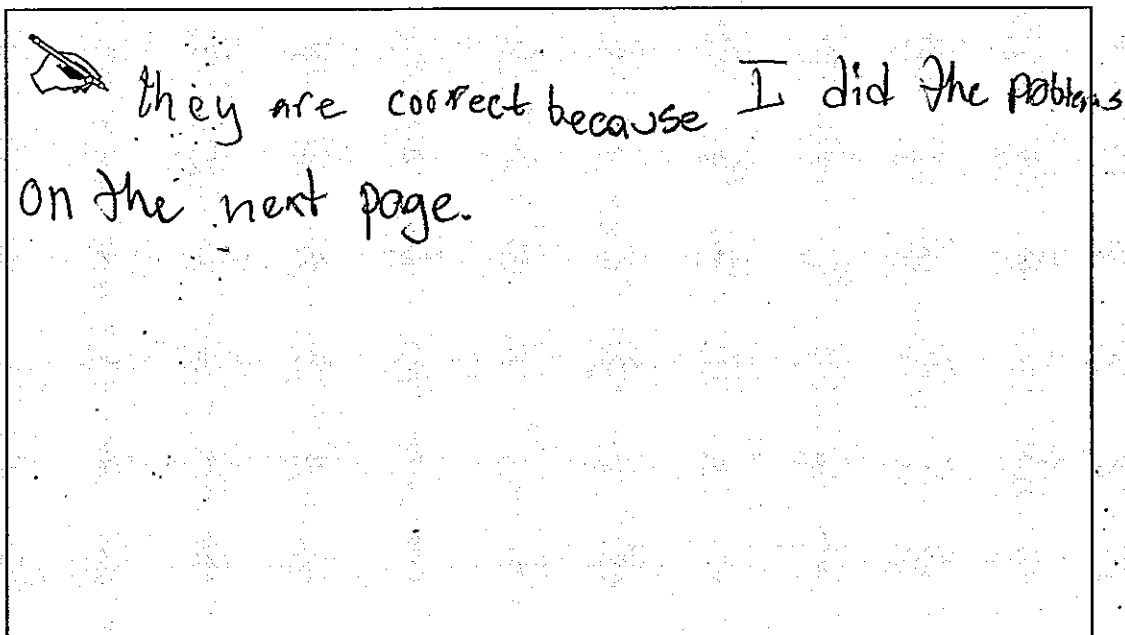 they are correct because I did the poblems
on the next page.